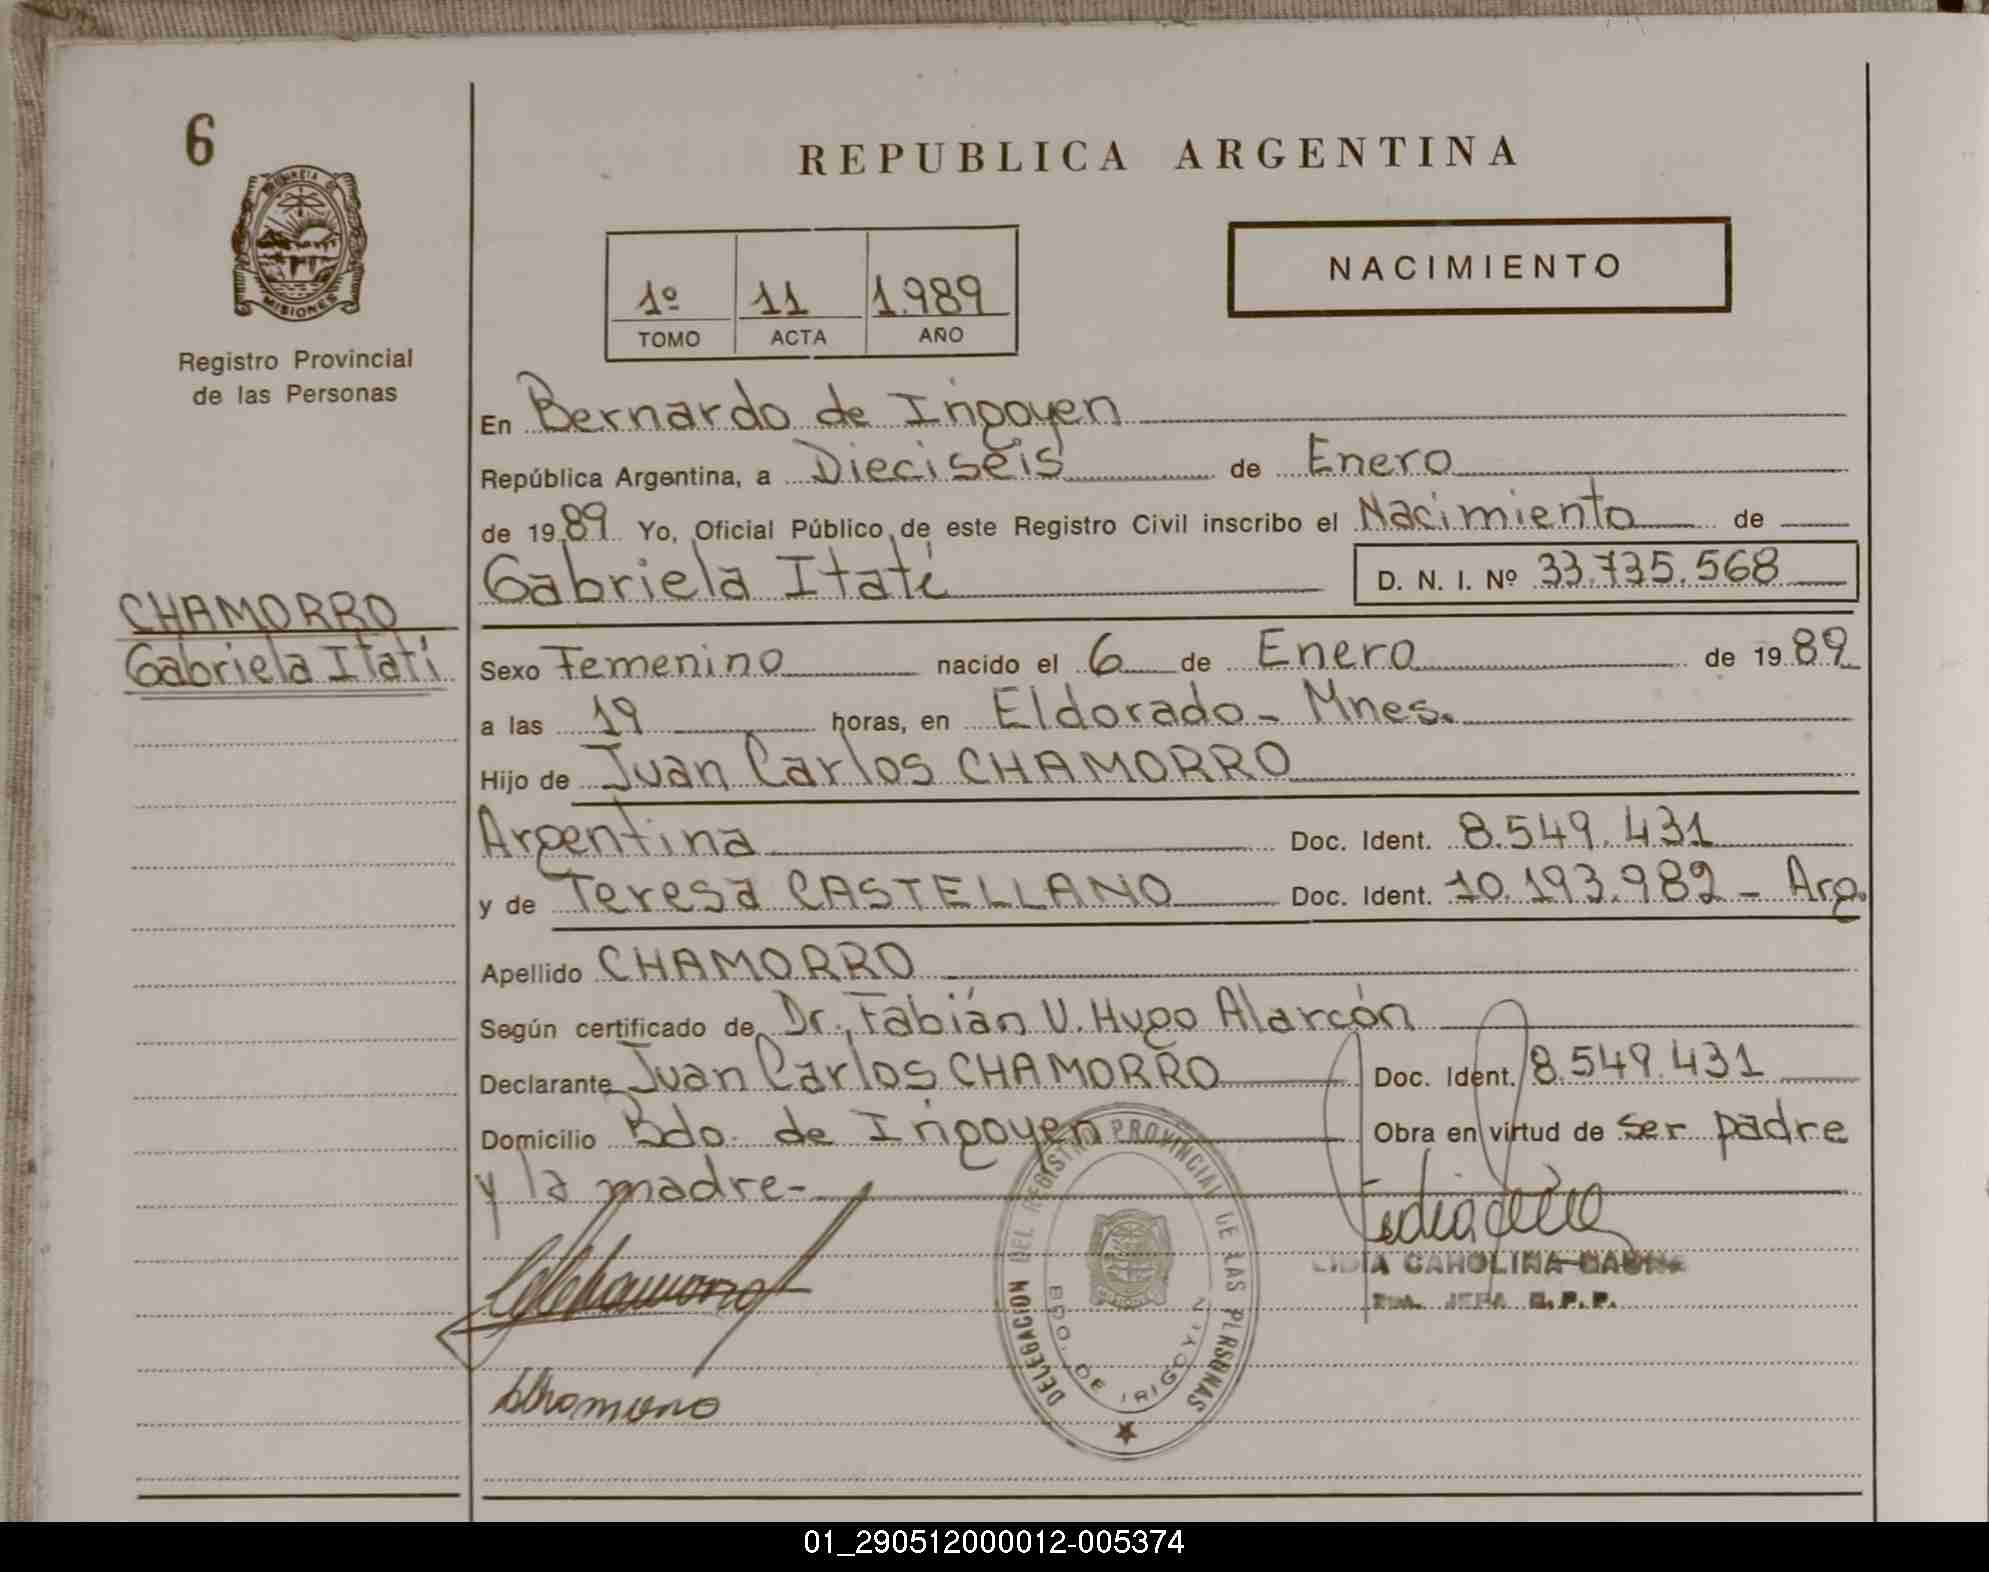 6
PROVINCIA DE
MISIONES
Registro Provincial
de las Personas
CHAMORRO
Gabriela Itatí
REPUBLICA ARGENTINA
1º 11 1.989
TOMO ACTA AÑO
NACIMIENTO
En Bernardo de Irigoyen
República Argentina, a Dieciseis de Enero
de 1989 Yo, Oficial Público de este Registro Civil inscribo el Nacimiento de
Gabriela Itatí D. N. I. Nº 33.735.568
Sexo Femenino nacido el 6 de Enero de 1989
a las 19 horas, en Eldorado - Mnes.
Hijo de Juan Carlos CHAMORRO
Argentina Doc. Ident. 8.549.431
y de Teresa CASTELLANO Doc. Ident. 10.193.982 - Arg.
Apellido CHAMORRO
Según certificado de Dr. Fabián V. Hugo Alarcón
Declarante Juan Carlos CHAMORRO Doc. Ident. 8.549.431
Domicilio Bdo. de Irigoyen Obra en virtud de ser padre
y la madre-
DELEGACION DEL REGISTRO PROVINCIAL DE LAS PERSONAS
BDO. DE IRIGOYEN
LIDIA CAROLINA
JEFA R.P.P.
01_290512000012-005374